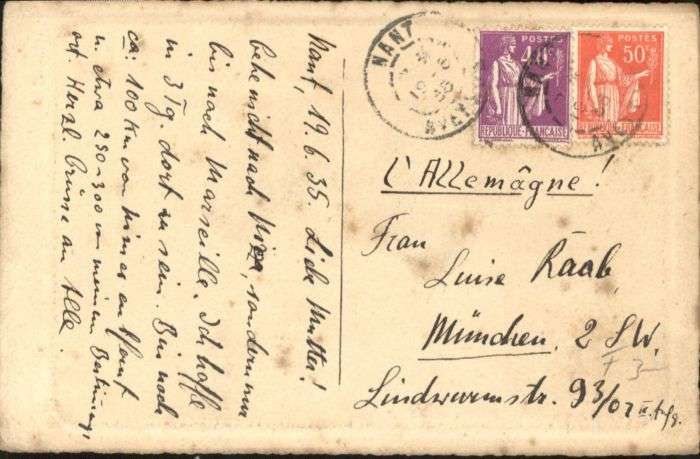 Nant, 19. 6. 35. Liebe Mutter!
gehe nicht nach Nizza, sondern nur
bis nach Marseille. Ich hoffe
in 3 Tg. dort zu sein. Bin noch
ca: 100 km von hier entfernt
u. etwa 250-300 von meinem Bestimmungs,
ort. Herzl. Grüsse an Alle.
NANT
AVEYRON
POSTES
40c
RÉPUBLIQUE-FRANÇAISE
POSTES
50c
RÉPUBLIQUE-FRANÇAISE
L'Allemâgne!
Frau
Luise Raab,
München, 2 SW.
Lindwurmstr. 93/02